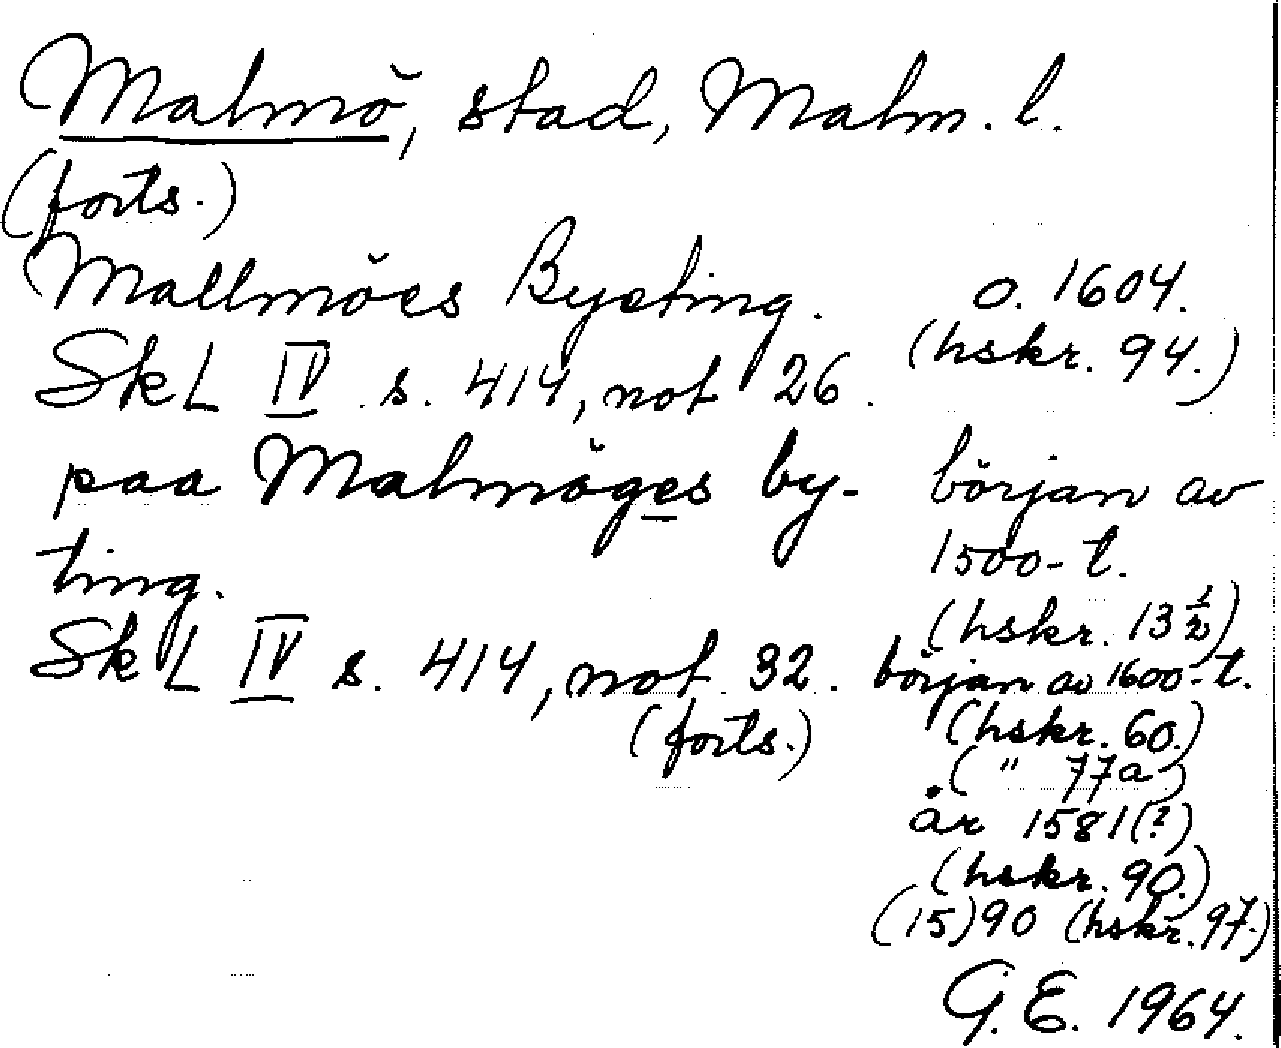 Malmö, stad, Malm. l.
(forts.)
Mallmöes Byeting. o. 1604.
(hskr. 94.)
SkL IV s. 414, not 26.
paa Malmöges by- början av
ting. 1500-t.
(hskr. 13 1/2)
SkL IV s. 414, not 32. början av 1600-t.
(forts.) (hskr. 60.)
( " 77a)
år 1581(?)
(hskr. 90.)
(15)90 (hskr. 97.)
G. E. 1964.